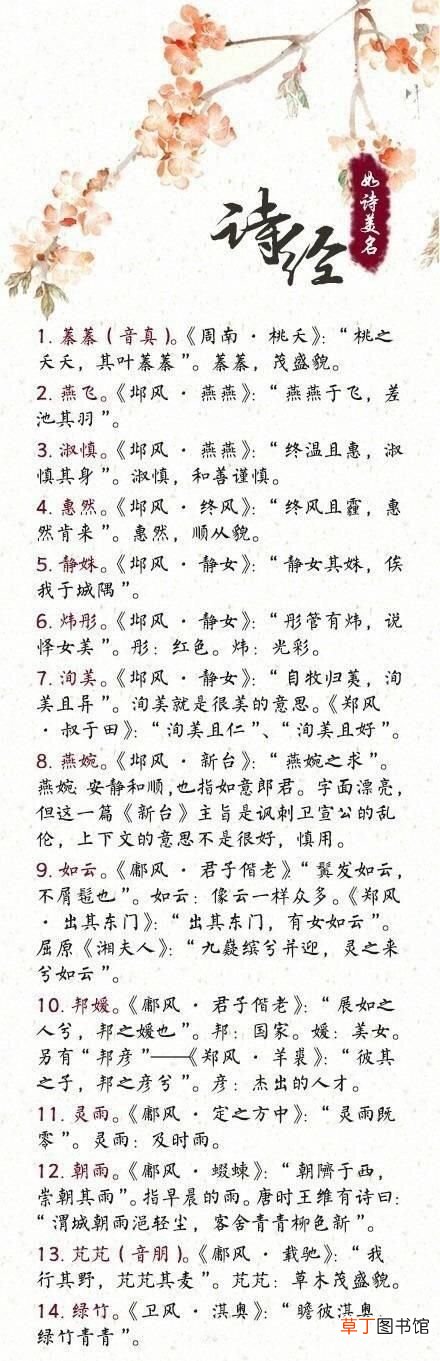 如诗美名
诗经
1. 蓁蓁（音真）。《周南·桃夭》：“桃之
夭夭，其叶蓁蓁”。蓁蓁，茂盛貌。
2. 燕飞。《邶风·燕燕》：“燕燕于飞，差
池其羽”。
3. 淑慎。《邶风·燕燕》：“终温且惠，淑
慎其身”。淑慎，和善谨慎。
4. 惠然。《邶风·终风》：“终风且霾，惠
然肯来”。惠然，顺从貌。
5. 静姝。《邶风·静女》：“静女其姝，俟
我于城隅”。
6. 炜彤。《邶风·静女》：“彤管有炜，说
怿女美”。彤：红色。炜：光彩。
7. 洵美。《邶风·静女》：“自牧归荑，洵
美且异”。洵美就是很美的意思。《郑风
·叔于田》：“洵美且仁”、“洵美且好”。
8. 燕婉。《邶风·新台》：“燕婉之求”。
燕婉 安静和顺，也指如意郎君。字面漂亮，
但这一篇《新台》主旨是讽刺卫宣公的乱
伦，上下文的意思不是很好，慎用。
9. 如云。《鄘风·君子偕老》“鬒发如云，
不屑髢也”。如云：像云一样众多。《郑风
·出其东门》：“出其东门，有女如云”。
屈原《湘夫人》：“九嶷缤兮并迎，灵之来
兮如云”。
10. 邦媛。《鄘风·君子偕老》：“展如之
人兮，邦之媛也”。邦：国家。媛：美女。
另有“邦彦”——《郑风·羊裘》：“彼其
之子，邦之彦兮”。彦：杰出的人才。
11. 灵雨。《鄘风·定之方中》：“灵雨既
零”。灵雨：及时雨。
12. 朝雨。《鄘风·蝃蝀》：“朝隮于西，
崇朝其雨”。指早晨的雨。唐时王维有诗曰：
“渭城朝雨浥轻尘，客舍青青柳色新”。
13. 芃芃（音朋）。《鄘风·载驰》：“我
行其野，芃芃其麦”。芃芃：草木茂盛貌。
14. 绿竹。《卫风·淇奥》：“瞻彼淇奥，
绿竹青青”。
草丁图书馆